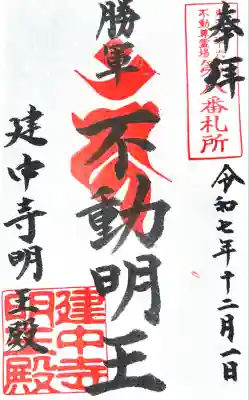 奉拝
八番札所
不動尊霊場
令和七年十二月一日
勝軍
不動明王
建中寺明王殿
建中寺
明王殿